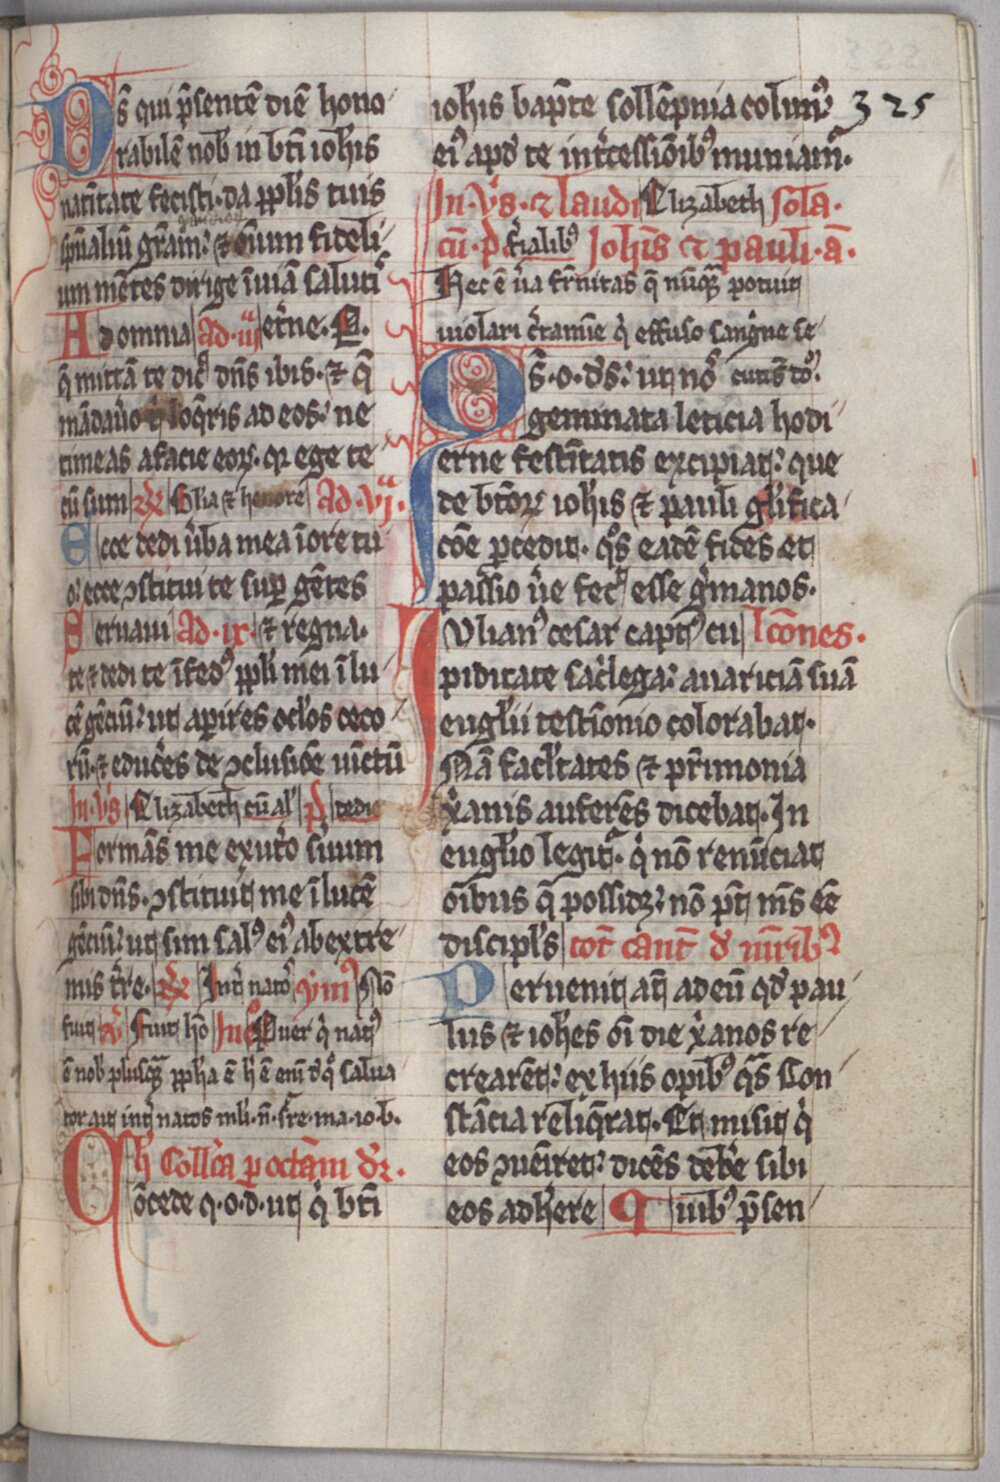 Ds̄ qui p̄sentē diē hono
rabilē nob̄ in bt̄i ioh̄is
natītate fecisti· da ppl̄is tuis
sp̄ualiū gr̄am: ⁊ om̄ium fideli
um mētes dirige ī uiā saluti
Ad omnia ad iij et̄ne. E.
q̄ mittā te dic̄ dn̄s ibis· ⁊ q̄
mādauo loq̄ris ad eos: ne
timeas a facie eoꝝ· qꝛ ego te
cū sum Gl̄ia ⁊ honore Ad vj·
Ecce dedi ūba mea ī ore tu
o: ecce ꝯstitui te sup̄ gētes
Seruaui Ad ix· ⁊ regna·
te ⁊ dedi te ī fed᷒ ppl̄i mei ī lu
cē gēciū: ut apires ocl̄os ceco
rū· ⁊ educ̄es de ꝯclusiōe uinctū
In vs̄ Elizabeth cū al' p̄ die
Formās me ex ut̄o s̄uum
sibi dn̄s· ꝯstituit me ī lucē
gēciū: ut sim sal᷒ ei᷒ ab extre
mis t̄re· Int̄ nato ymn᷒ Nō
fuit v̄ Fuit hō Puer q̄ nat᷒
ē nob̄ plusq̄ꝫ pph̄a ē h̄ ē eni d̄ q̊ salua
tor ait int̄ natos ml̄i· n̄· s̄re· ma· io· b·
Coll̄ca p octām d̄r·
Cōcede q·o·d· ut q̄ bt̄i
ioh̄is bapt̄e sollēpnia colim᷒ 325
ei᷒ apd̄ te int̄cessiōib᷒ muniam̄·
In vs̄· ⁊ laud Elizabeth sola·
cū· p̄· f̄ialib᷒ Ioh̄is ⁊ pauli· ā·
Hec ē ūa fr̄nitas q̄ nūq̄ꝫ potuit
uiolari c̄tamīe q̄ effuso sangīne se
Os̄·o·ds̄: ut nō cuti s̄t
geminata leticia hodi
erne festītatis excipiat: que
de bt̄oꝝ ioh̄is ⁊ pauli gl̄ifica
cōe pcedit· q̊s eadē fides et
passio ūe fec̄ esse ḡmanos·
Iulian᷒ cesar capt᷒ cu lc̄ones·
piditate sac̄lega: auariciā suā
eugl̄ii testīonio colorabat·
Nā facl̄tates ⁊ pr̄imonia
xp̄anis auferēs dicebat· In
eugl̄io legit̄· q̄ nō renūciat
oībus q̄ possidꝫ: nō pt̄ ms̄ eē
discipl̄s tot cant̄ d̄ mr̄ib᷒
Peruenit at̄ ad eū qd̄ pau
lus ⁊ ioh̄es oī die xp̄anos re
crearēt: ex hiis opib᷒ q̄s Con
stācia reliq̄rat· Et misit q̄
eos ꝯueīret: dicēs deb̄e sibi
eos adh̄ere Quib᷒ p̄sen